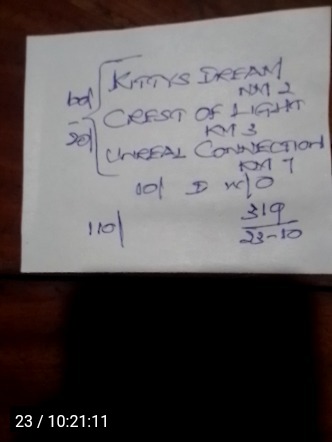 KITTYS DREAM
NM 2
CREST OF LIGHT
KM 3
UNREAL CONNECTION
KM 7
20/
10/ D
110/
319
23-10
23 / 10:21:11